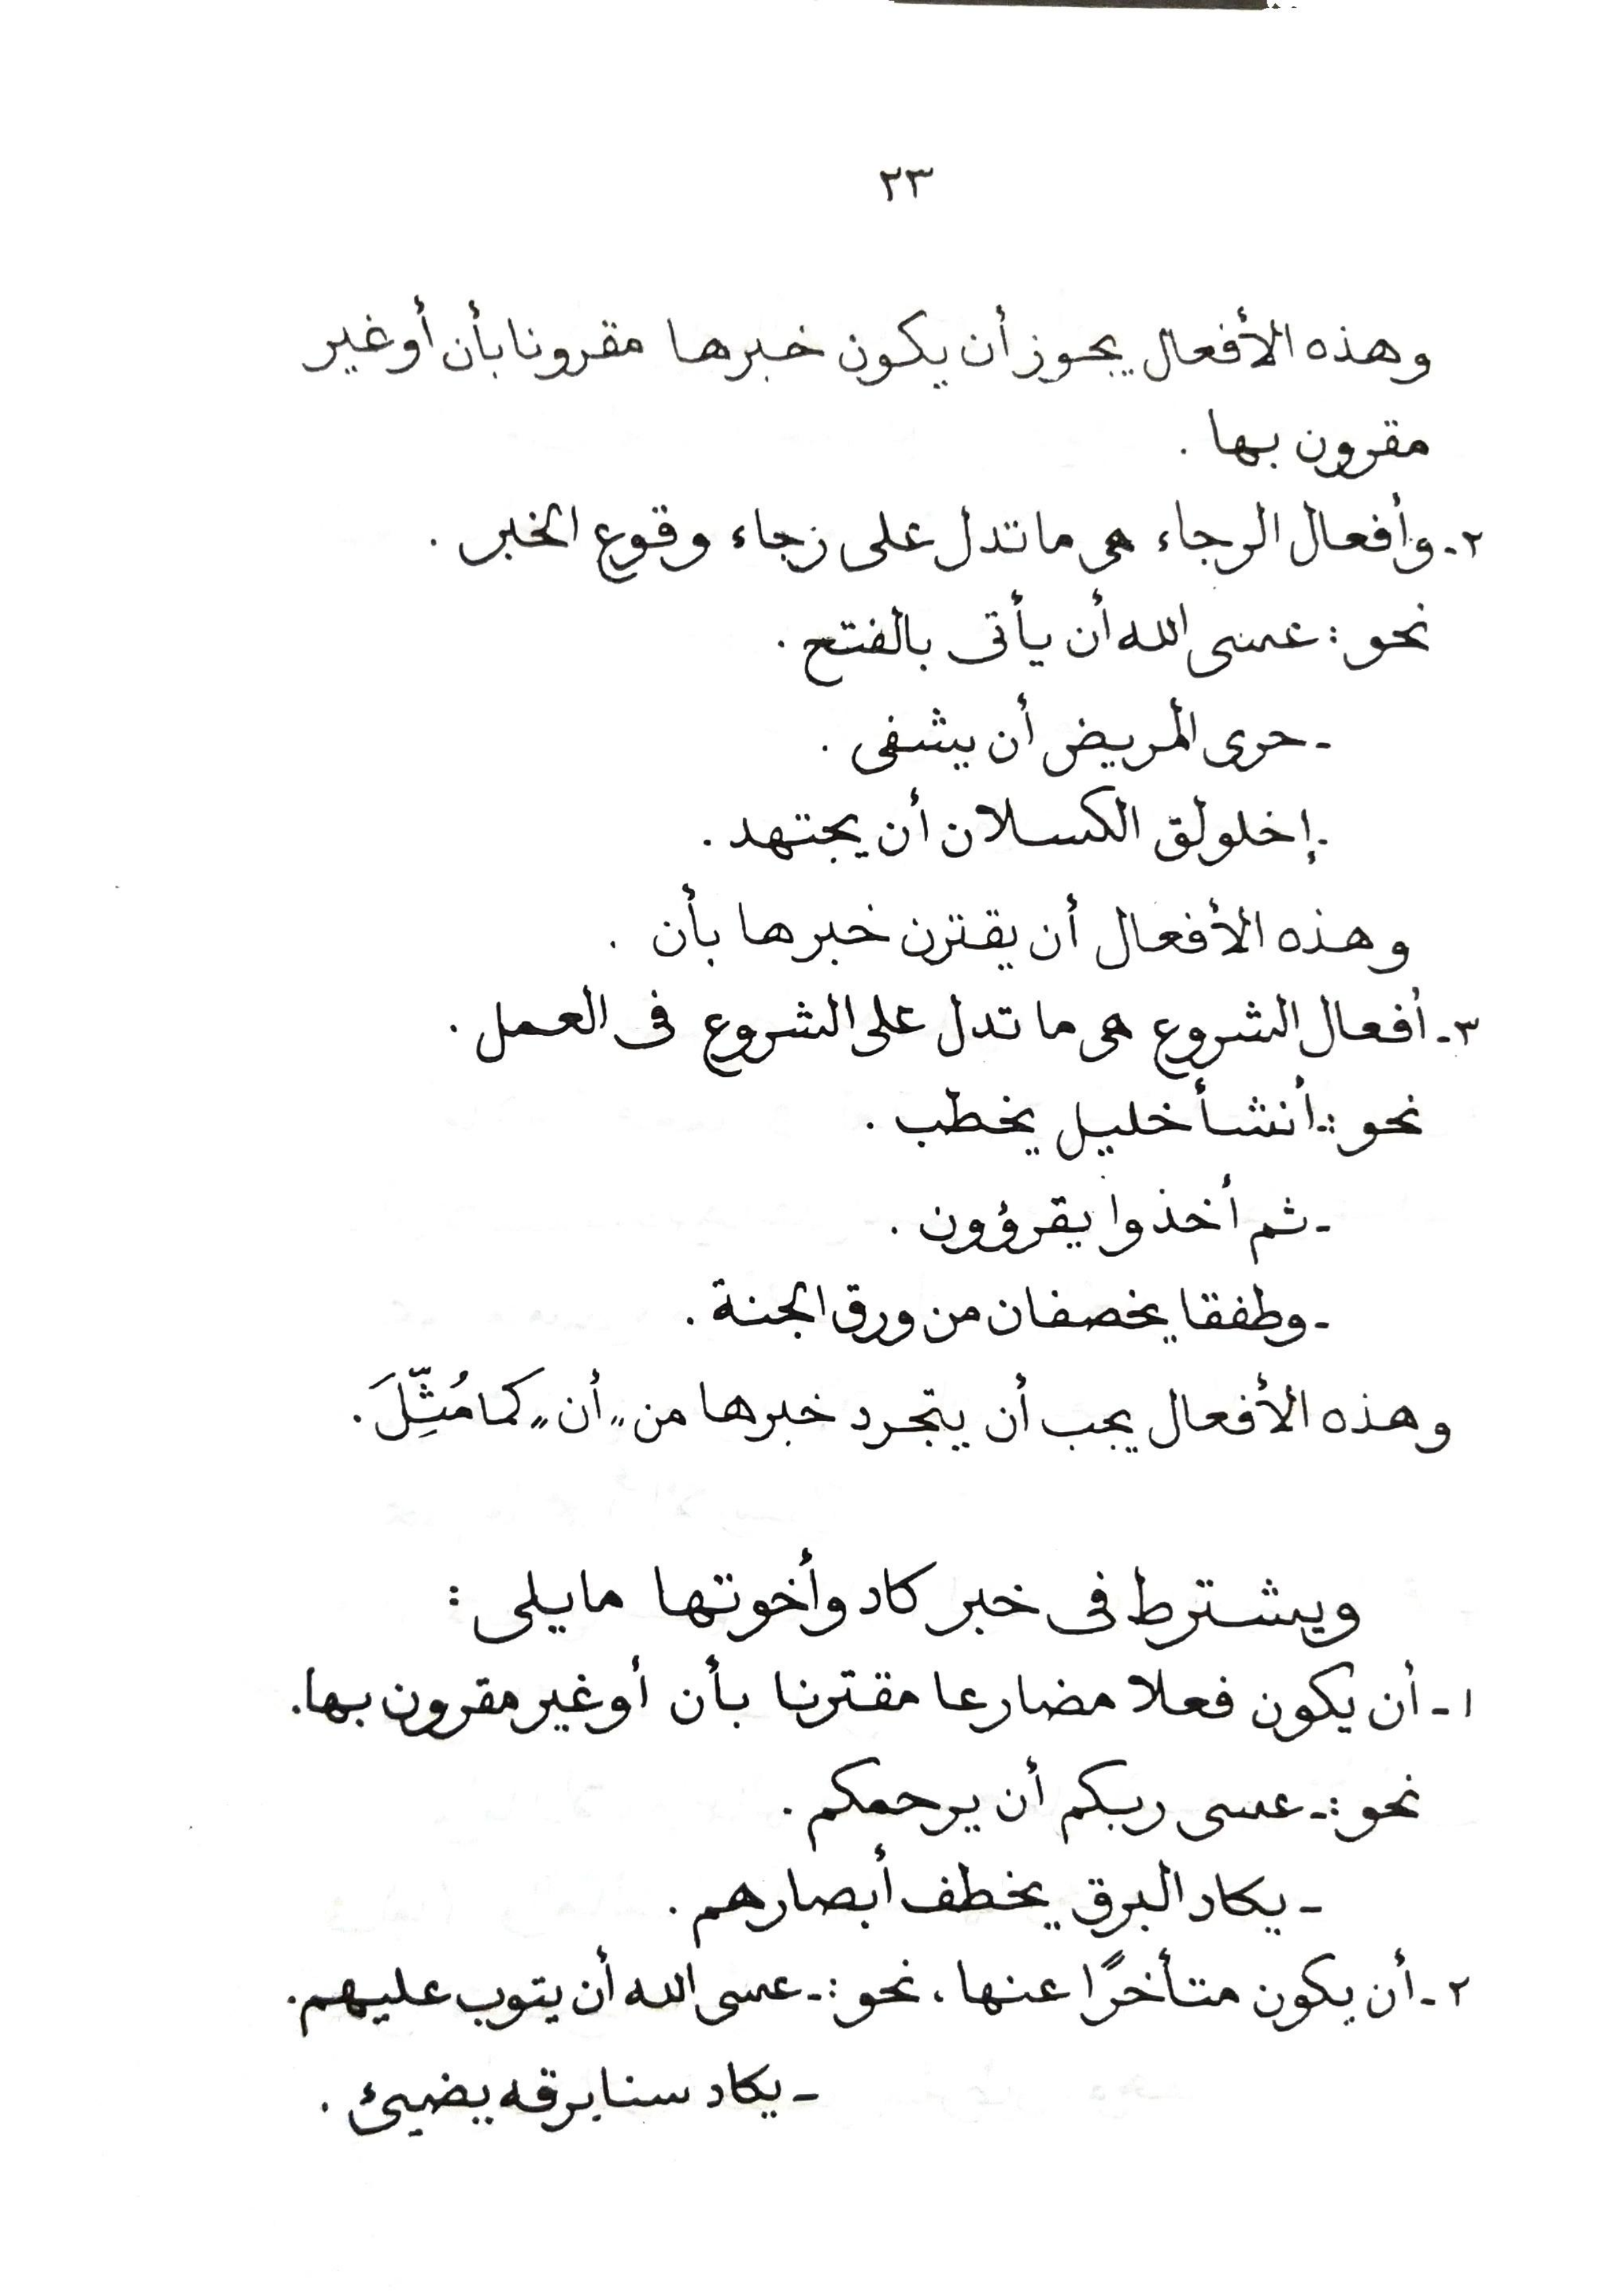 ٢٣
وهذه الأفعال يجوز أن يكون خبرها مقرونا بأن أو غير
مقرون بها .
٢- وأفعال الرجاء هى ما تدل على رجاء وقوع الخبر .
نحو : عسى الله أن يأتى بالفتح .
- حرى المريض أن يشفى .
- إخلولق الكسلان أن يجتهد .
وهذه الأفعال أن يقترن خبرها بأن .
٣- أفعال الشروع هى ما تدل على الشروع فى العمل .
نحو :- أنشأ خليل يخطب .
- ثم أخذوا يقرؤون .
- وطفقا يخصفان من ورق الجنة .
وهذه الأفعال يجب أن يتجرد خبرها من "أن" كما مُثِّلَ .
ويشترط فى خبر كاد وأخوتها ما يلى :
١- أن يكون فعلا مضارعا مقترنا بأن أو غير مقرون بها.
نحو :- عسى ربكم أن يرحمكم .
- يكاد البرق يخطف أبصارهم .
٢- أن يكون متأخرًا عنها ، نحو :- عسى الله أن يتوب عليهم.
- يكاد سنا برقه يضيئ .